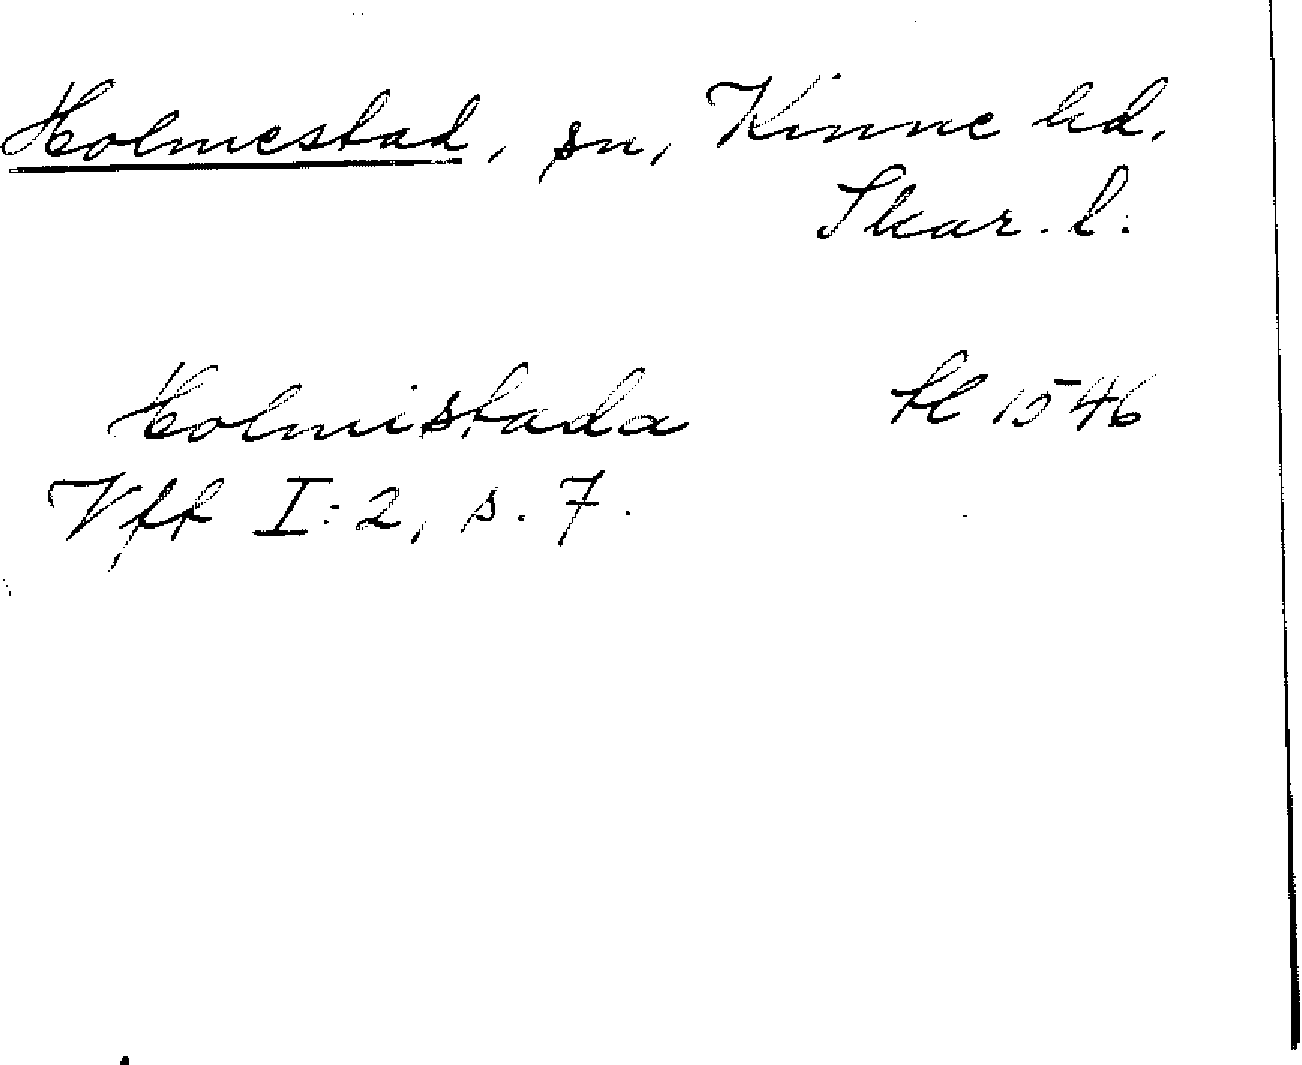 Holmestad, sn, Kinne hd,
Skar. l.
Holmistada fl 1546
Vff I:2, s. 7.